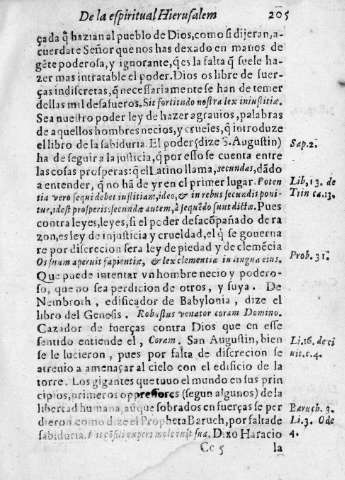 De la espiritual Hierusalem 205
çada q̃ hazian al pueblo de Dios, como si dijeran, a-
cuerdate Señor que nos has dexado en manos de
gẽte poderosa, y ignorante, q̃ es la falta q̃ suele ha-
zer mas intratable el poder. Dios os libre de fuer-
ças indiscretas, q̃ necessariamente se han de temer
dellas mil desafueros. Sit fortitudo nostra lex iniustitiæ.
Sea nuestro poder ley de hazer agrauios, palabras
de aquellos hombres necios, y crueles, q̃ introduze
el libro de la sabiduria. El poder (dize S. Augustin) Sap. 2.
ha de seguir a la justicia, q̃ por esso se cuenta entre
las cosas prosperas: q̃ el Latino llama, secundas, dãdo
a entender, q̃ no hã de yr en el primer lugar. Poten Lib, 13. de
tia vero sequi debet iustitiam, ideo, & in rebus secundis poni- Trin ca. 13.
tur, idest prosperis: secundæ autem, à sequẽdo sunt dictæ. Pues
contra leyes, leyes, si el poder desacõpañado de ra
zon, es ley de injusticia y crueldad, el q̃ se gouerna
re por discrecion sera ley de piedad y de clemẽcia
Os suum aperuit sapientiæ, & lex clementiæ in lingua eius. Prob. 31.
Que puede intentar vn hombre necio y podero-
so, que no sea perdicion de otros, y suya. De
Nembroth, edificador de Babylonia, dize el
libro del Genesis. Robustus venator coram Domino.
Cazador de fuerças contra Dios que en esse
sentido entiende el, Coram. San Augustin, bien Li. 16. de ci
se le lucieron, pues por falta de discrecion se uit. c. 4.
atreuio a amenaçar al cielo con el edificio de la
torre. Los gigantes que tuuo el mundo en sus prin
cipios, primeros opressores (segun algunos) de la
libertad humana, aũque sobrados en fuerças se per Baruch. 3.
dieron como dize el Propheta Baruch, por faltade Li. 3. Ode
sabiduria. expers mole ruit sua. Dixo Haracio 4.
Cc 5 la